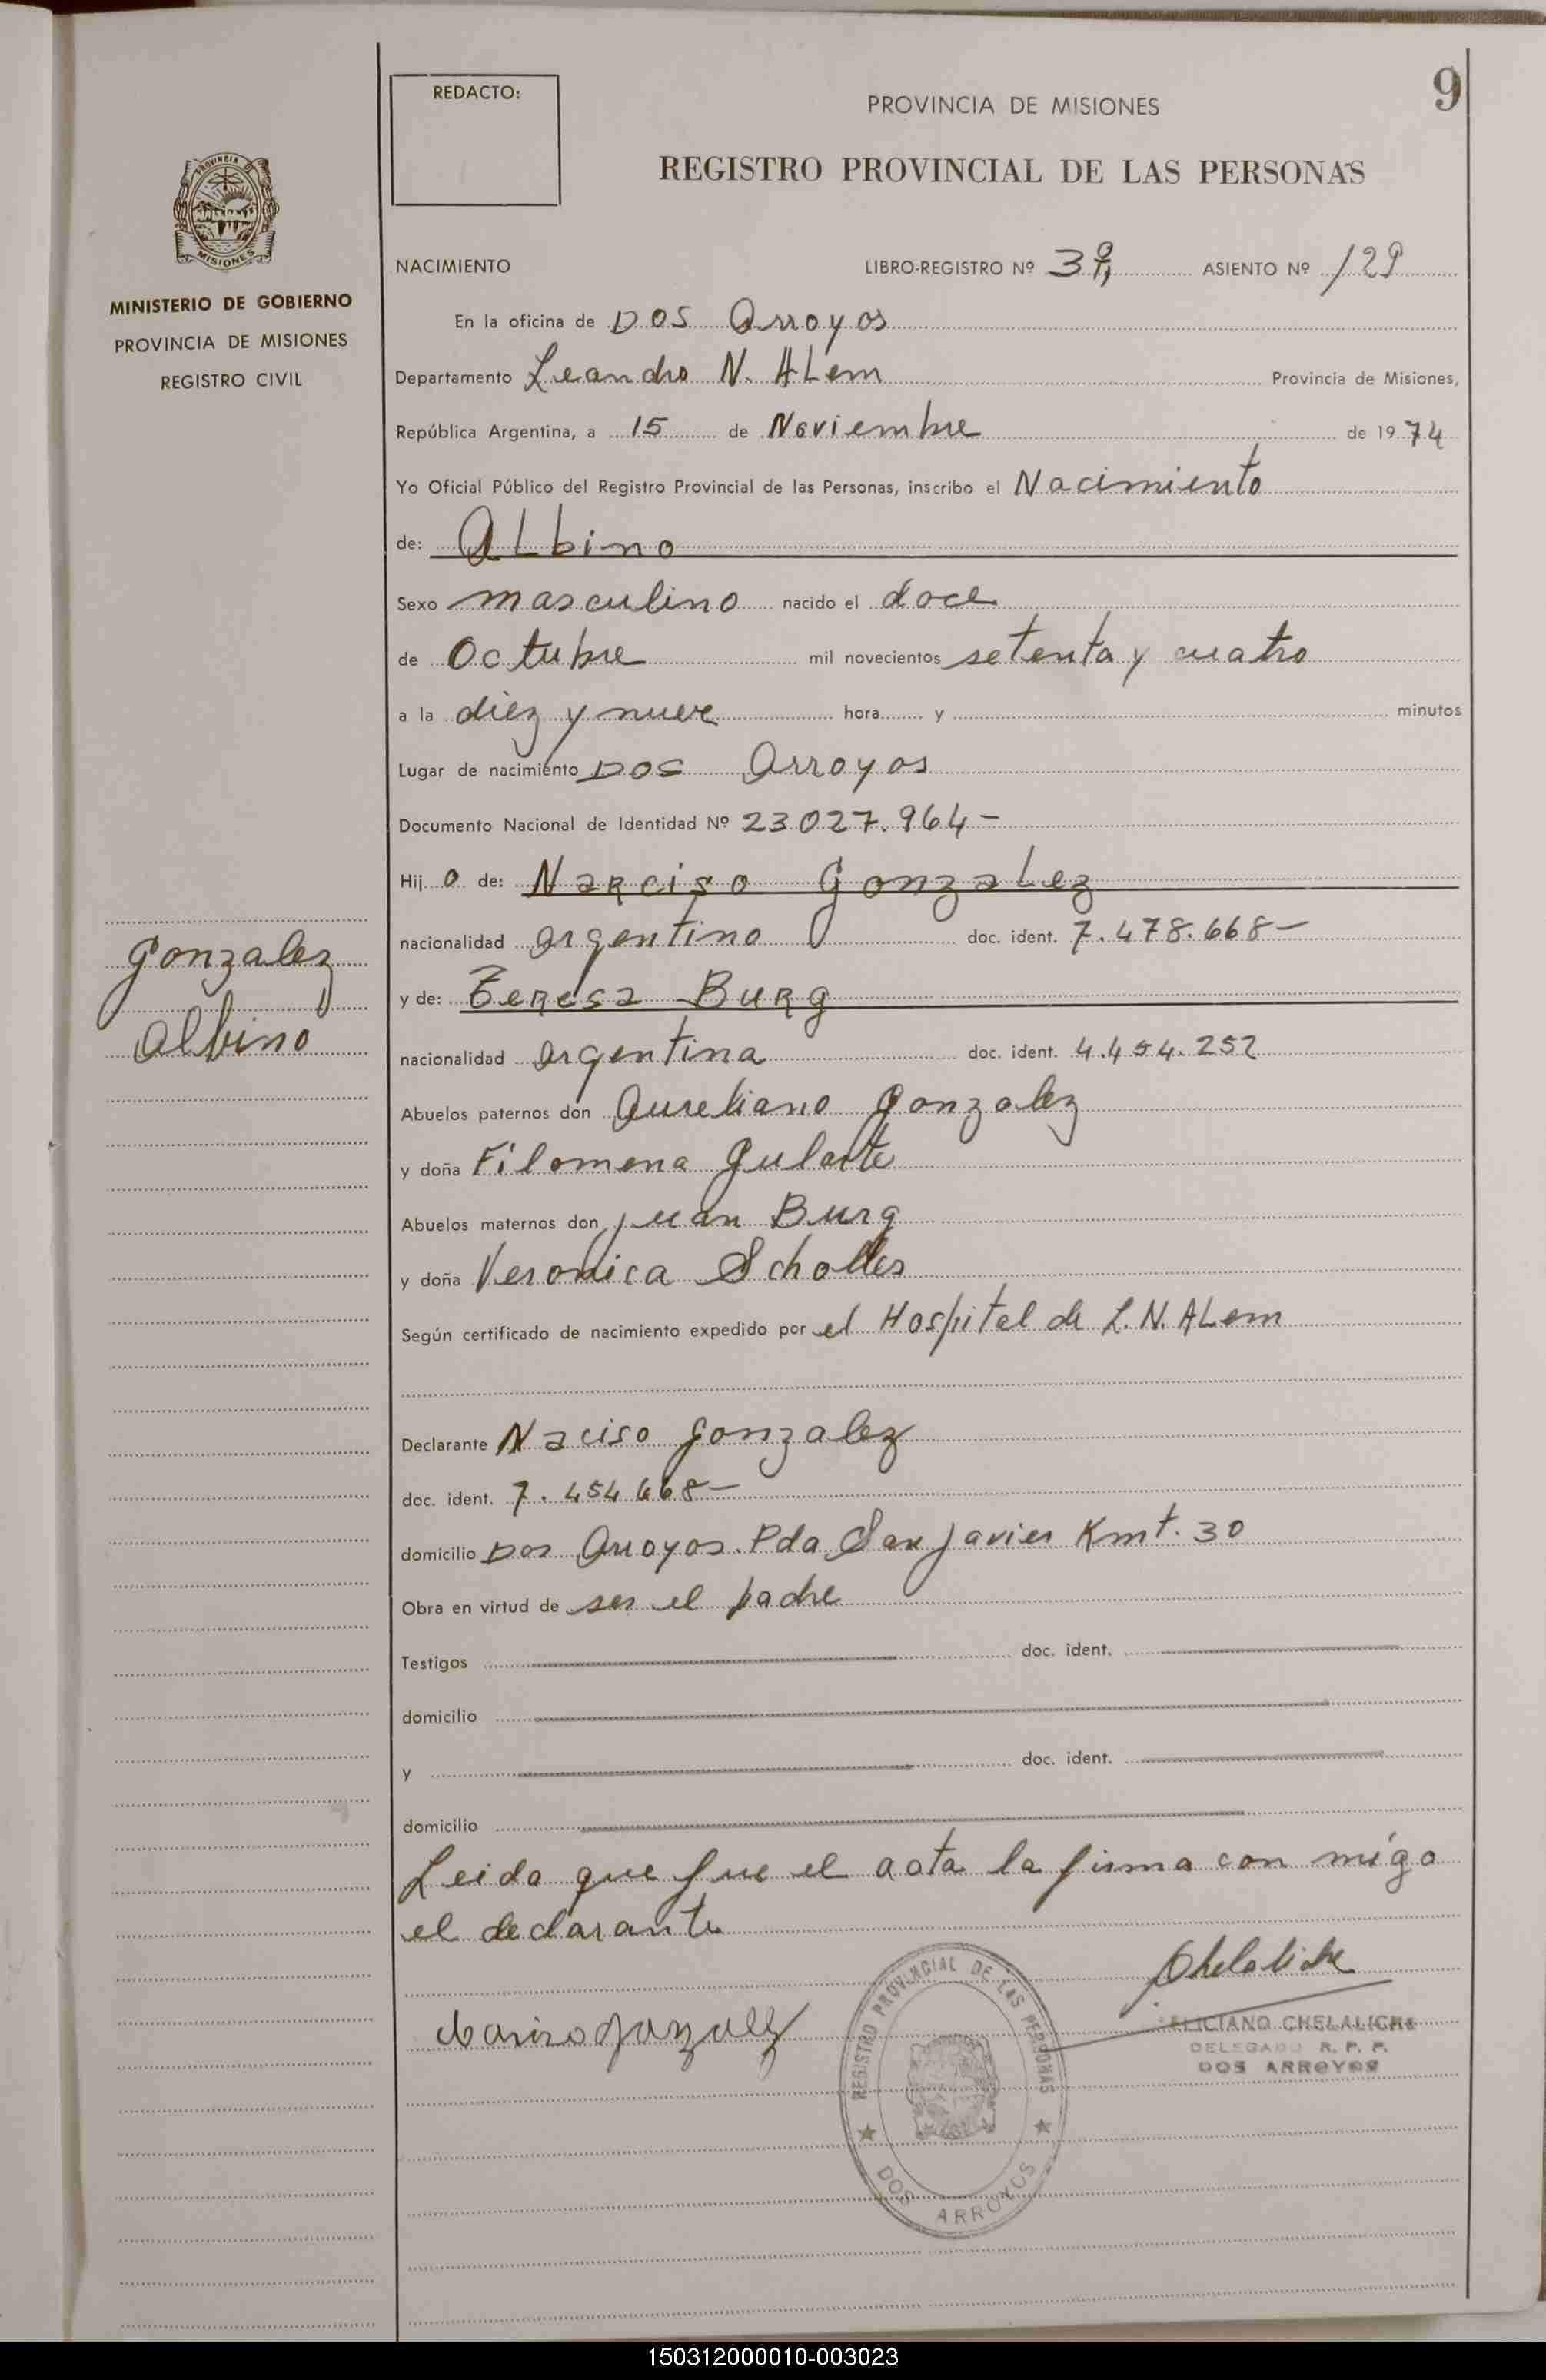 9
REDACTO:
PROVINCIA DE MISIONES
REGISTRO PROVINCIAL DE LAS PERSONAS
PROVINCIA MISIONES
MINISTERIO DE GOBIERNO
PROVINCIA DE MISIONES
REGISTRO CIVIL
NACIMIENTO LIBRO-REGISTRO Nº ASIENTO Nº 129
En la oficina de DOS Arroyos
Departamento Leandro N. ALem Provincia de Misiones,
República Argentina, a 15 de Noviembre de 19 74
Yo Oficial Público del Registro Provincial de las Personas, inscribo el Nacimiento
de: ALbino
Sexo masculino nacido el doce
de Octubre mil novecientos setenta y cuatro
a la diez y nueve hora y minutos
Lugar de nacimiento Dos Arroyos
Documento Nacional de Identidad Nº 23.027.964-
Hij o de: Narciso Gonzalez
nacionalidad argentino doc. ident. 7.478.668-
Gonzalez
Albino
y de: Teresa Burg
nacionalidad argentina doc. ident. 4.454.252
Abuelos paternos don Aureliano Gonzalez
y doña Filomena Gularte
Abuelos maternos don Juan Burg
y doña Veronica Scholles
Según certificado de nacimiento expedido por el Hospital de L.N. ALem
Declarante Naciso Gonzalez
doc. ident. 7.454.668-
domicilio Dos Arroyos. Pda San Javier Kmt. 30
Obra en virtud de ser el padre
Testigos doc. ident.
domicilio
y doc. ident.
domicilio
Leida que fue el acta la firma con migo
el declarante
Chelaliche
REGISTRO PROVINCIAL DE LAS PERSONAS
DOS ARROYOS
FELICIANO CHELALICHE
DELEGADO R. P. P.
DOS ARROYOS
150312000010-003023